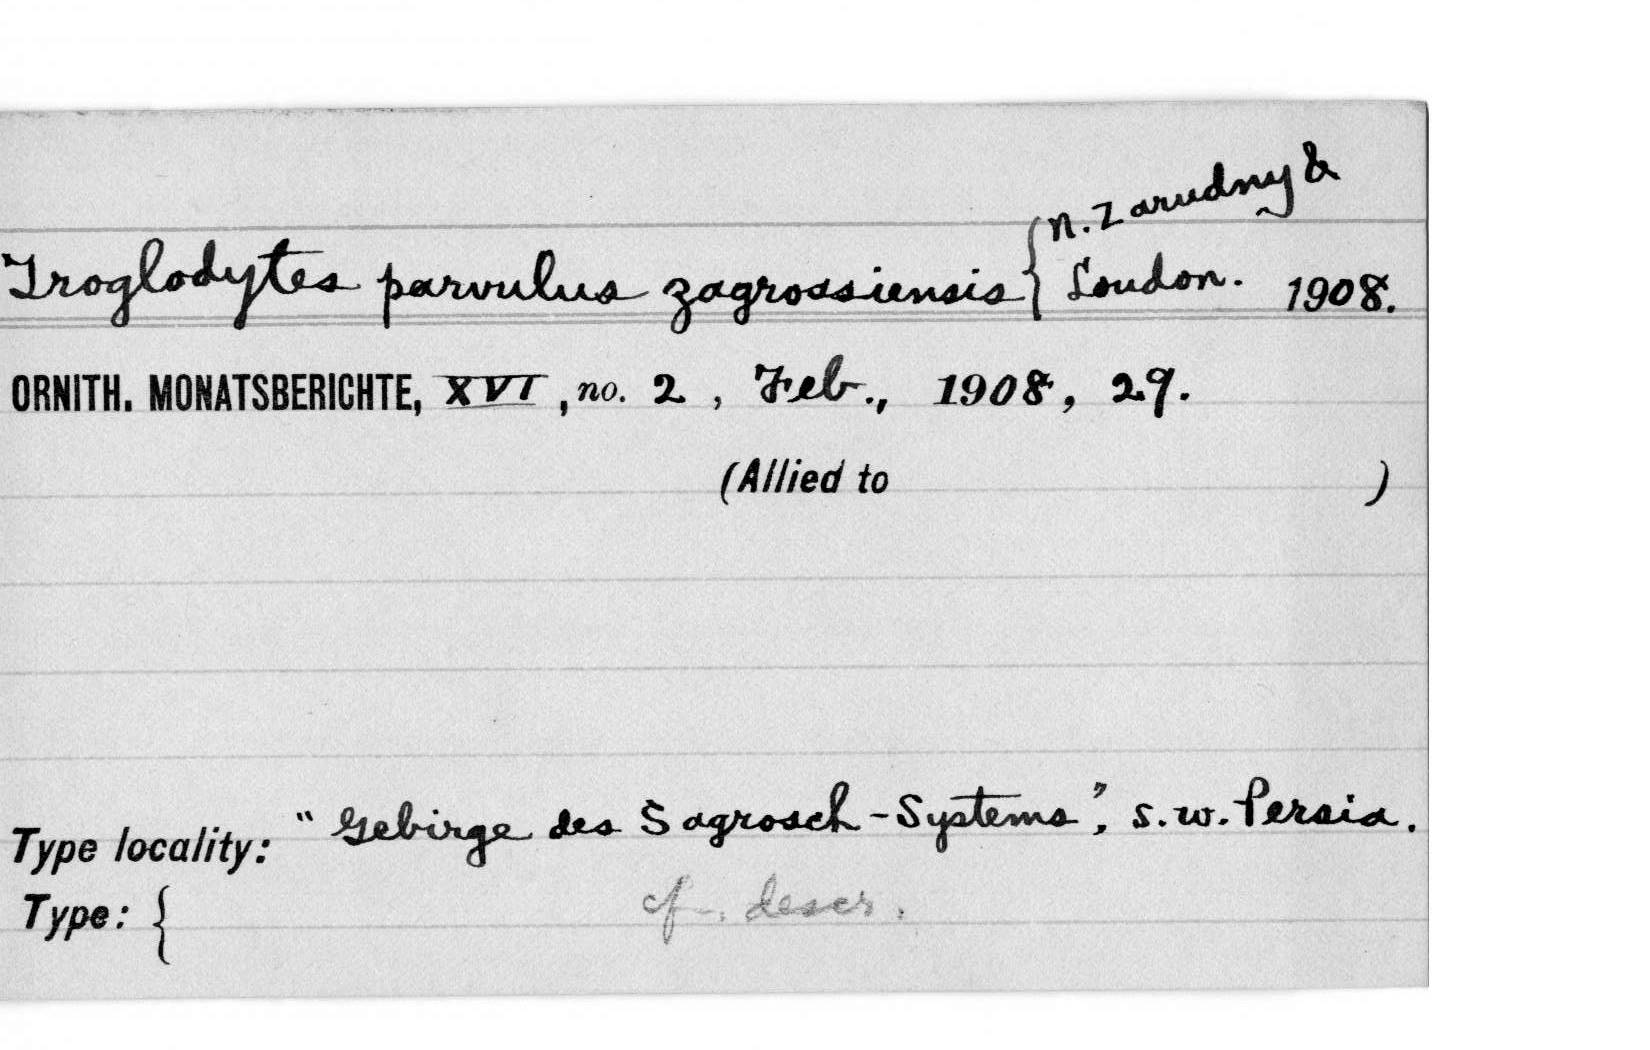 N. Zarudny &
Troglodytes parvulus zagrossiensis { Loudon. 1908.
ORNITH. MONATSBERICHTE, XVI, no. 2, Feb., 1908, 29.
(Allied to )
Type locality: "Gebirge des Sagrosch-Systems", s.w. Persia.
Type: { cf. descr.